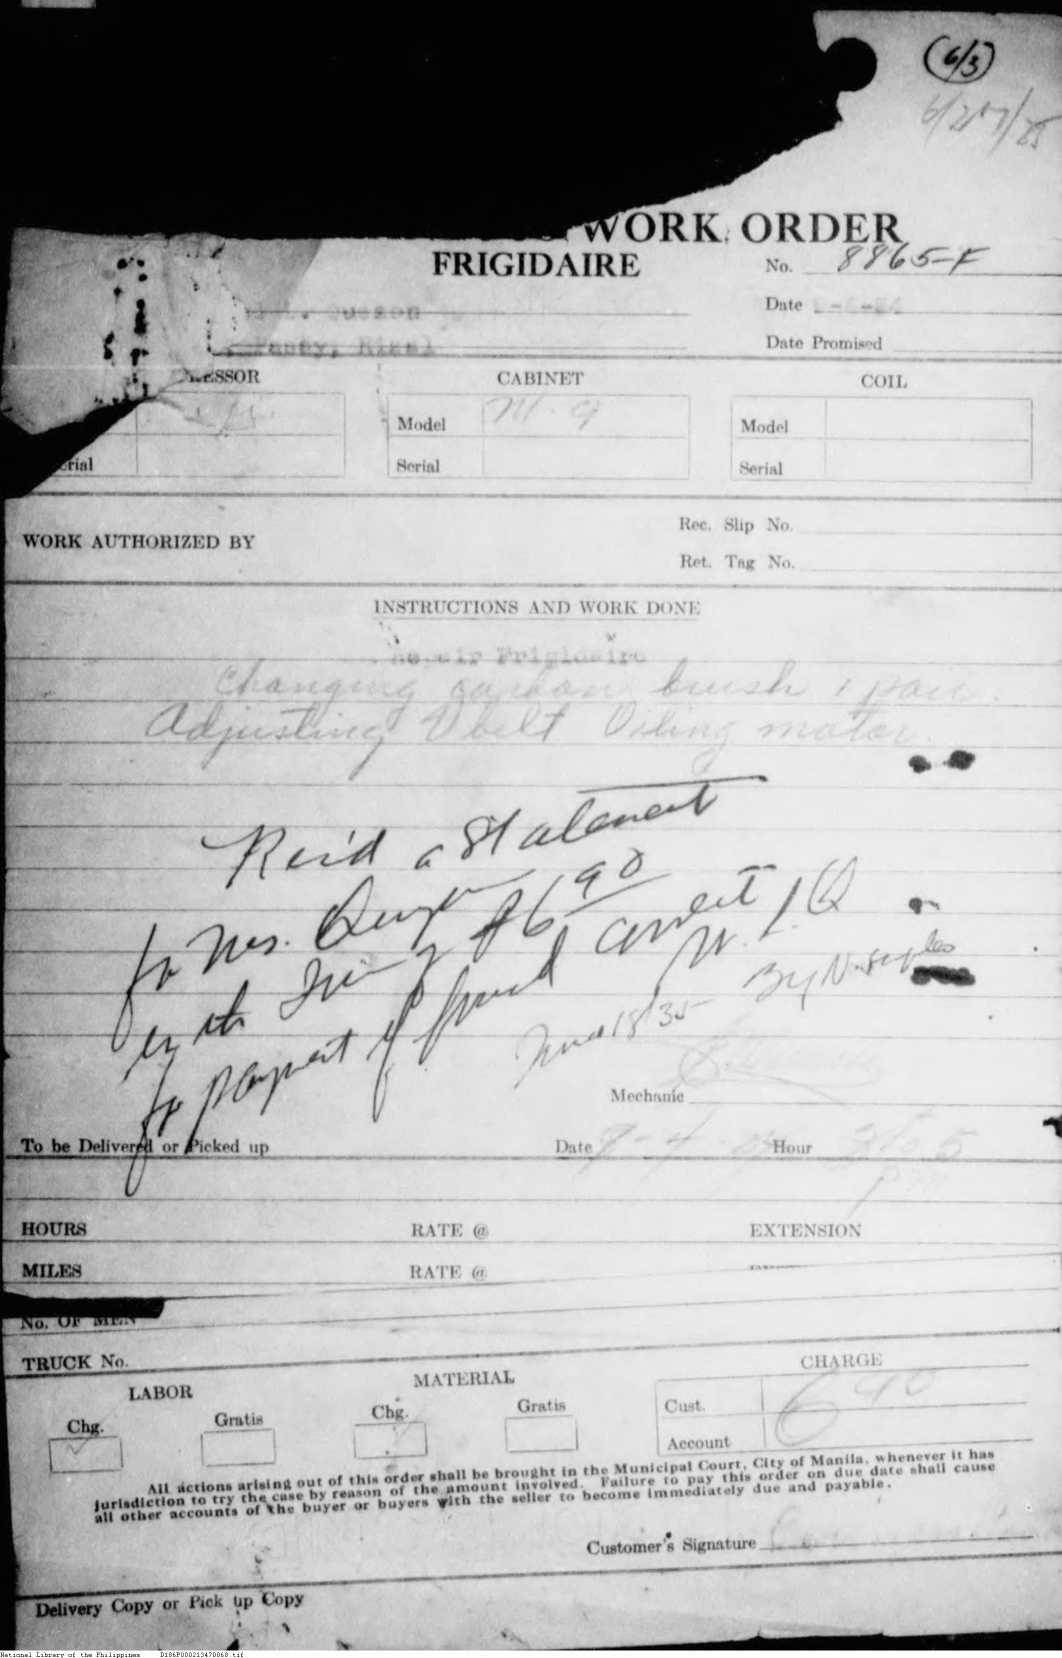 (6/3)
WORK ORDER
FRIGIDAIRE
No. 8865-F
Quezon
Date
Pasay, Rizal
Date Promised
CABINET
COIL
Model M-9
Model
Serial
Serial
WORK AUTHORIZED BY
Rec. Slip No.
Ret. Tag No.
INSTRUCTIONS AND WORK DONE
Repair Frigidaire
Changing carbon brush 1 pair.
Adjusting V belt Oiling motor.
Rec'd a statement
for Mrs. Quezon
₱6 90
for payment if found correct
June 18/35
Mechanic
To be Delivered or Picked up
Date Hour
HOURS
RATE @
EXTENSION
MILES
RATE @
No. OF MEN
TRUCK No.
LABOR
MATERIAL
CHARGE
Chg.
Gratis
Chg.
Gratis
Cust. 6 90
Account
All actions arising out of this order shall be brought in the Municipal Court, City of Manila, whenever it has
jurisdiction to try the case by reason of the amount involved. Failure to pay this order on due date shall cause
all other accounts of the buyer or buyers with the seller to become immediately due and payable.
Customer's Signature
Delivery Copy or Pick up Copy
National Library of the Philippines D186P000213470068.tif